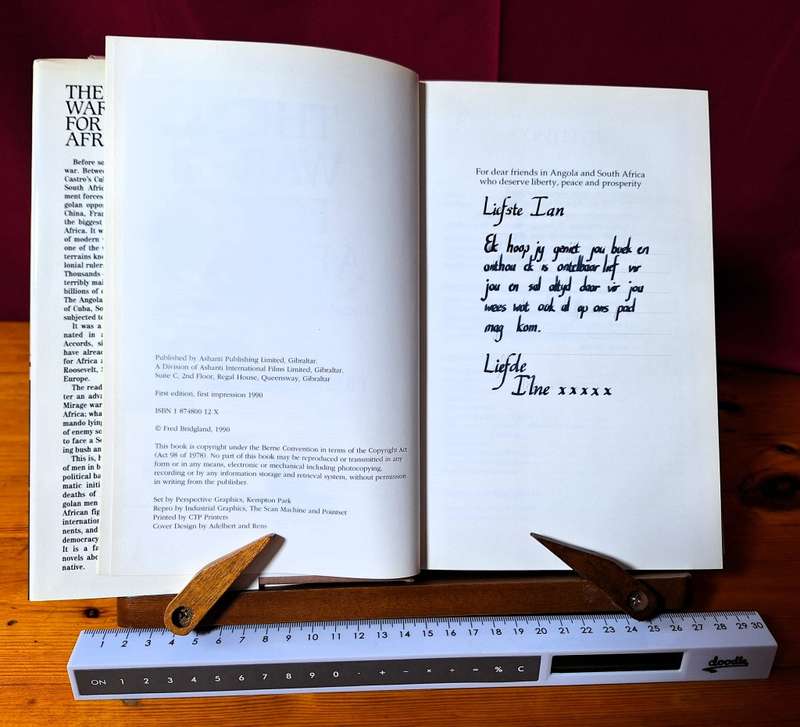 THE
WAR
FOR
AFR
Before se
war. Betwe
Castro's Cu
South Afric
ment forces
golan oppo
China, Fran
the biggest
Africa. It w
of modern
one of the
terrains kno
lonial ruler
Thousands
terribly mai
billions of
The Angola
of Cuba, So
subjected to
It was a
nated in
Accords, si
have alread
for Africa
Roosevelt, S
Europe.
The read
ter an adva
Mirage war
Africa; wha
mando lying
of enemy so
to face a So
ing bush an
This is,
of men in b
political ba
matic initi
deaths of
golan men
African fig
internation
nents, and
democracy
It is a fa
novels abou
native.
Published by Ashanti Publishing Limited, Gibraltar.
A Division of Ashanti International Films Limited, Gibraltar.
Suite C, 2nd Floor, Regal House, Queensway, Gibraltar
First edition, first impression 1990
ISBN 1 874800 12 X
© Fred Bridgland, 1990
This book is copyright under the Berne Convention in terms of the Copyright Act
(Act 98 of 1978). No part of this book may be reproduced or transmitted in any
form or in any means, electronic or mechanical including photocopying,
recording or by any information storage and retrieval system, without permission
in writing from the publisher.
Set by Perspective Graphics, Kempton Park
Repro by Industrial Graphics, The Scan Machine and Pointset
Printed by CTP Printers
Cover Design by Adelbert and Rens
For dear friends in Angola and South Africa
who deserve liberty, peace and prosperity
Liefste Ian
Ek hoop jy geniet jou boek en
onthou ek is ontelbaar lief vir
jou en sal altyd daar vir jou
wees wat ook al op ons pad
mag kom.
Liefde
Ilne xxxxx
1 2 3 4 5 6 7 8 9 10 11 12 13 14 15 16 17 18 19 20 21 22 23 24 25 26 27 28 29 30
ON 1 2 3 4 5 6 7 8 9 0 · + − × ÷ = % C
doodle